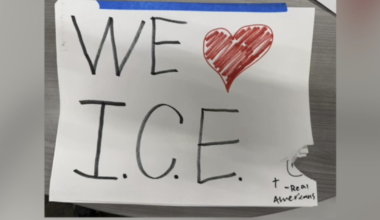 WE ❤
I.C.E.
- Real
Americans